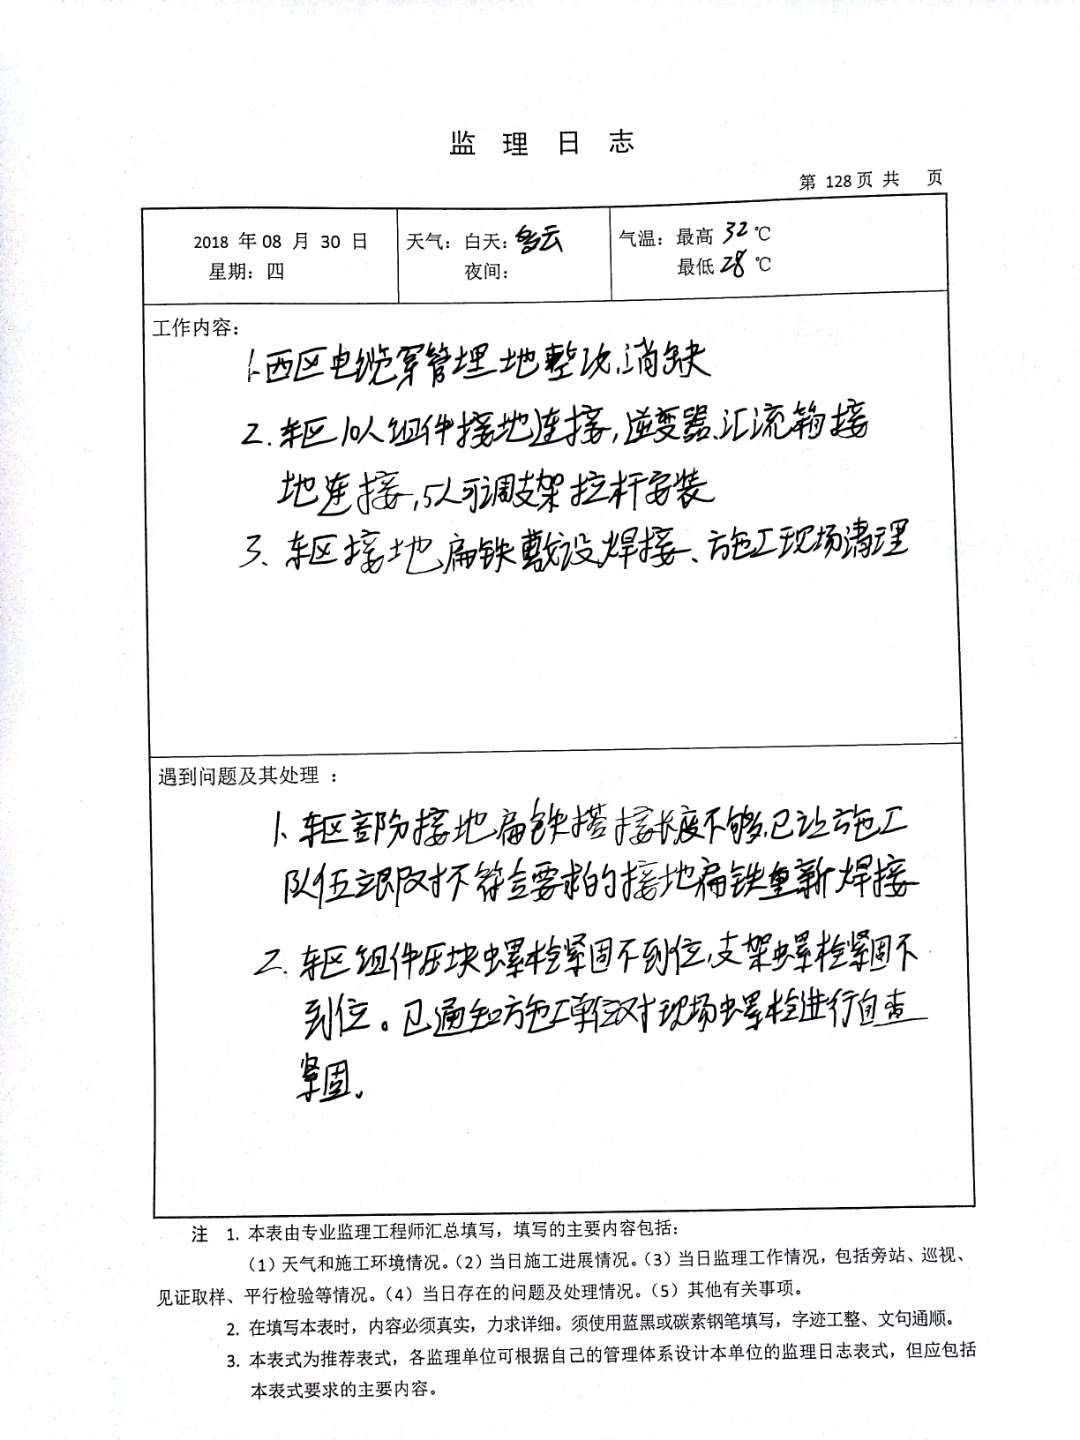 监 理 日 志
第 128页 共 页
2018 年 08 月 30 日
星期：四
天气：白天：多云
夜间：
气温：最高 32 ℃
最低 28 ℃
工作内容：
1.西区电缆穿管埋地整改、消缺
2.东区10人组件接地连接，逆变器、汇流箱接
地连接，5人可调支架拉杆安装
3、东区接地扁铁敷设焊接、施工现场清理
遇到问题及其处理 ：
1、东区部分接地扁铁搭接长度不够，已让施工
队伍立即对不符合要求的接地扁铁重新焊接
2、东区组件压块螺栓紧固不到位，支架螺栓紧固不
到位。已通知施工单位对现场螺栓进行自查
紧固。
注 1. 本表由专业监理工程师汇总填写，填写的主要内容包括：
（1）天气和施工环境情况。（2）当日施工进展情况。（3）当日监理工作情况，包括旁站、巡视、
见证取样、平行检验等情况。（4）当日存在的问题及处理情况。（5）其他有关事项。
2. 在填写本表时，内容必须真实，力求详细。须使用蓝黑或碳素钢笔填写，字迹工整、文句通顺。
3. 本表式为推荐表式，各监理单位可根据自己的管理体系设计本单位的监理日志表式，但应包括
本表式要求的主要内容。